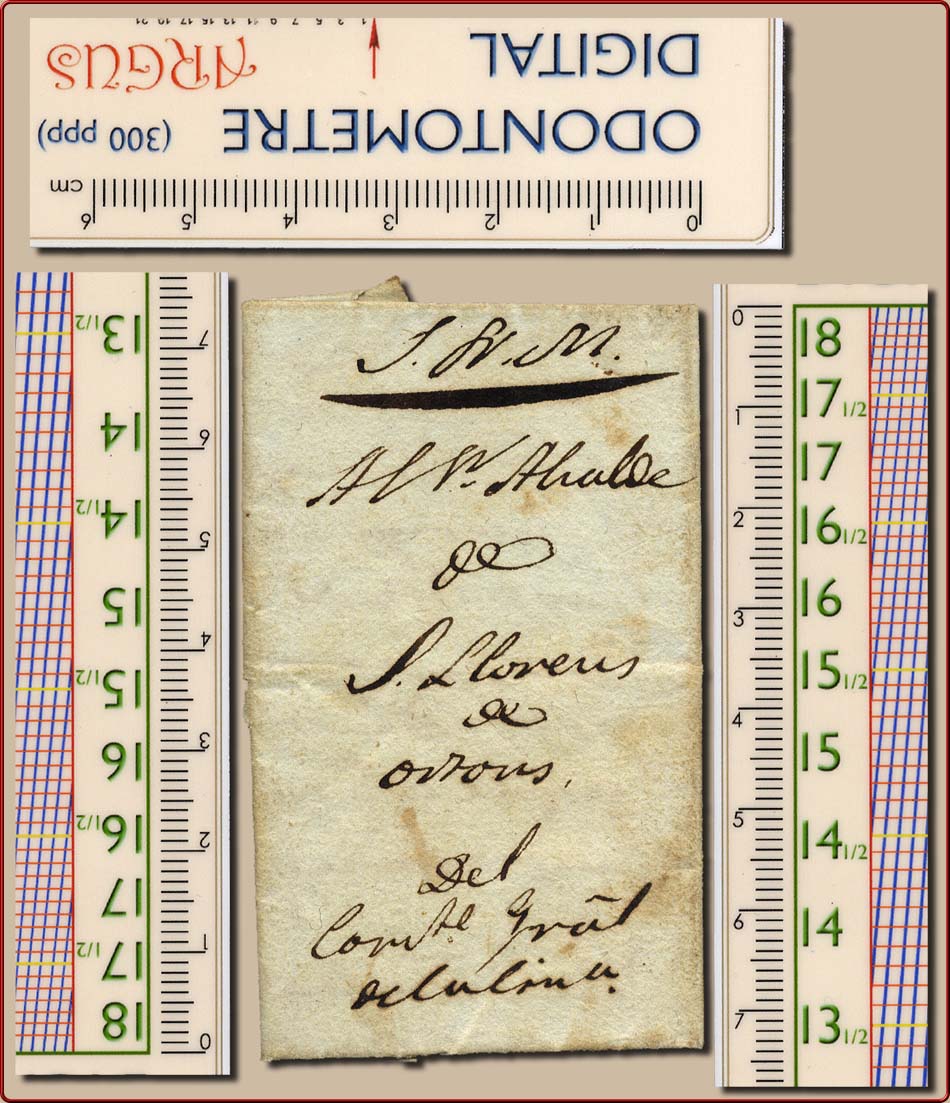 0 1 2 3 4 5 6 cm
ODONTOMETRE (300 ppp)
DIGITAL ARGUS
1 3 5 7 9 11 13 15 17 19 21
S. N. M.
Al Sr. Alcalde
de
S. Llorens
de
ortons,
Del
Comte. Grãl
de la linea.
13 1/2
14
14 1/2
15
15 1/2
16
16 1/2
17
17 1/2
18
7
6
5
4
3
2
1
0
0
1
2
3
4
5
6
7
18
17 1/2
17
16 1/2
16
15 1/2
15
14 1/2
14
13 1/2